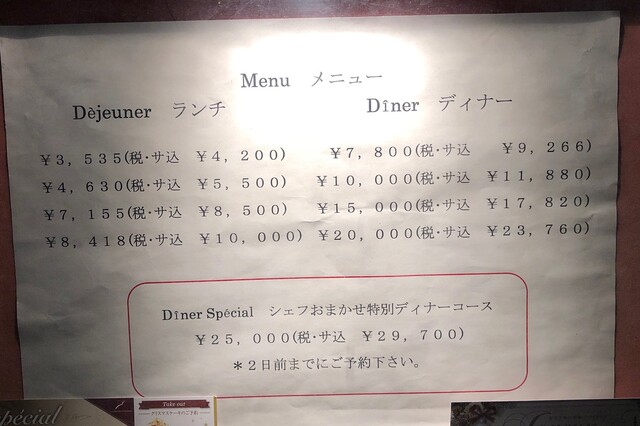 Menu メニュー
Dèjeuner ランチ
¥3,535(税・サ込 ¥4,200)
¥4,630(税・サ込 ¥5,500)
¥7,155(税・サ込 ¥8,500)
¥8,418(税・サ込 ¥10,000)
Dîner ディナー
¥7,800(税・サ込 ¥9,266)
¥10,000(税・サ込 ¥11,880)
¥15,000(税・サ込 ¥17,820)
¥20,000(税・サ込 ¥23,760)
Dîner Spécial シェフおまかせ特別ディナーコース
¥25,000(税・サ込 ¥29,700)
*2日前までにご予約下さい。
pécial
Take out